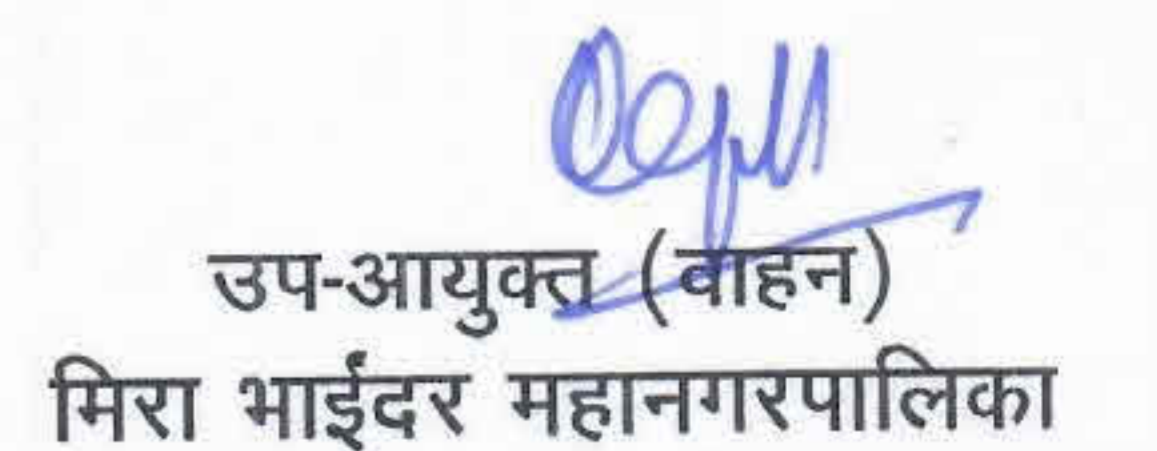 उप-आयुक्त (वाहन)
मिरा भाईंदर महानगरपालिका